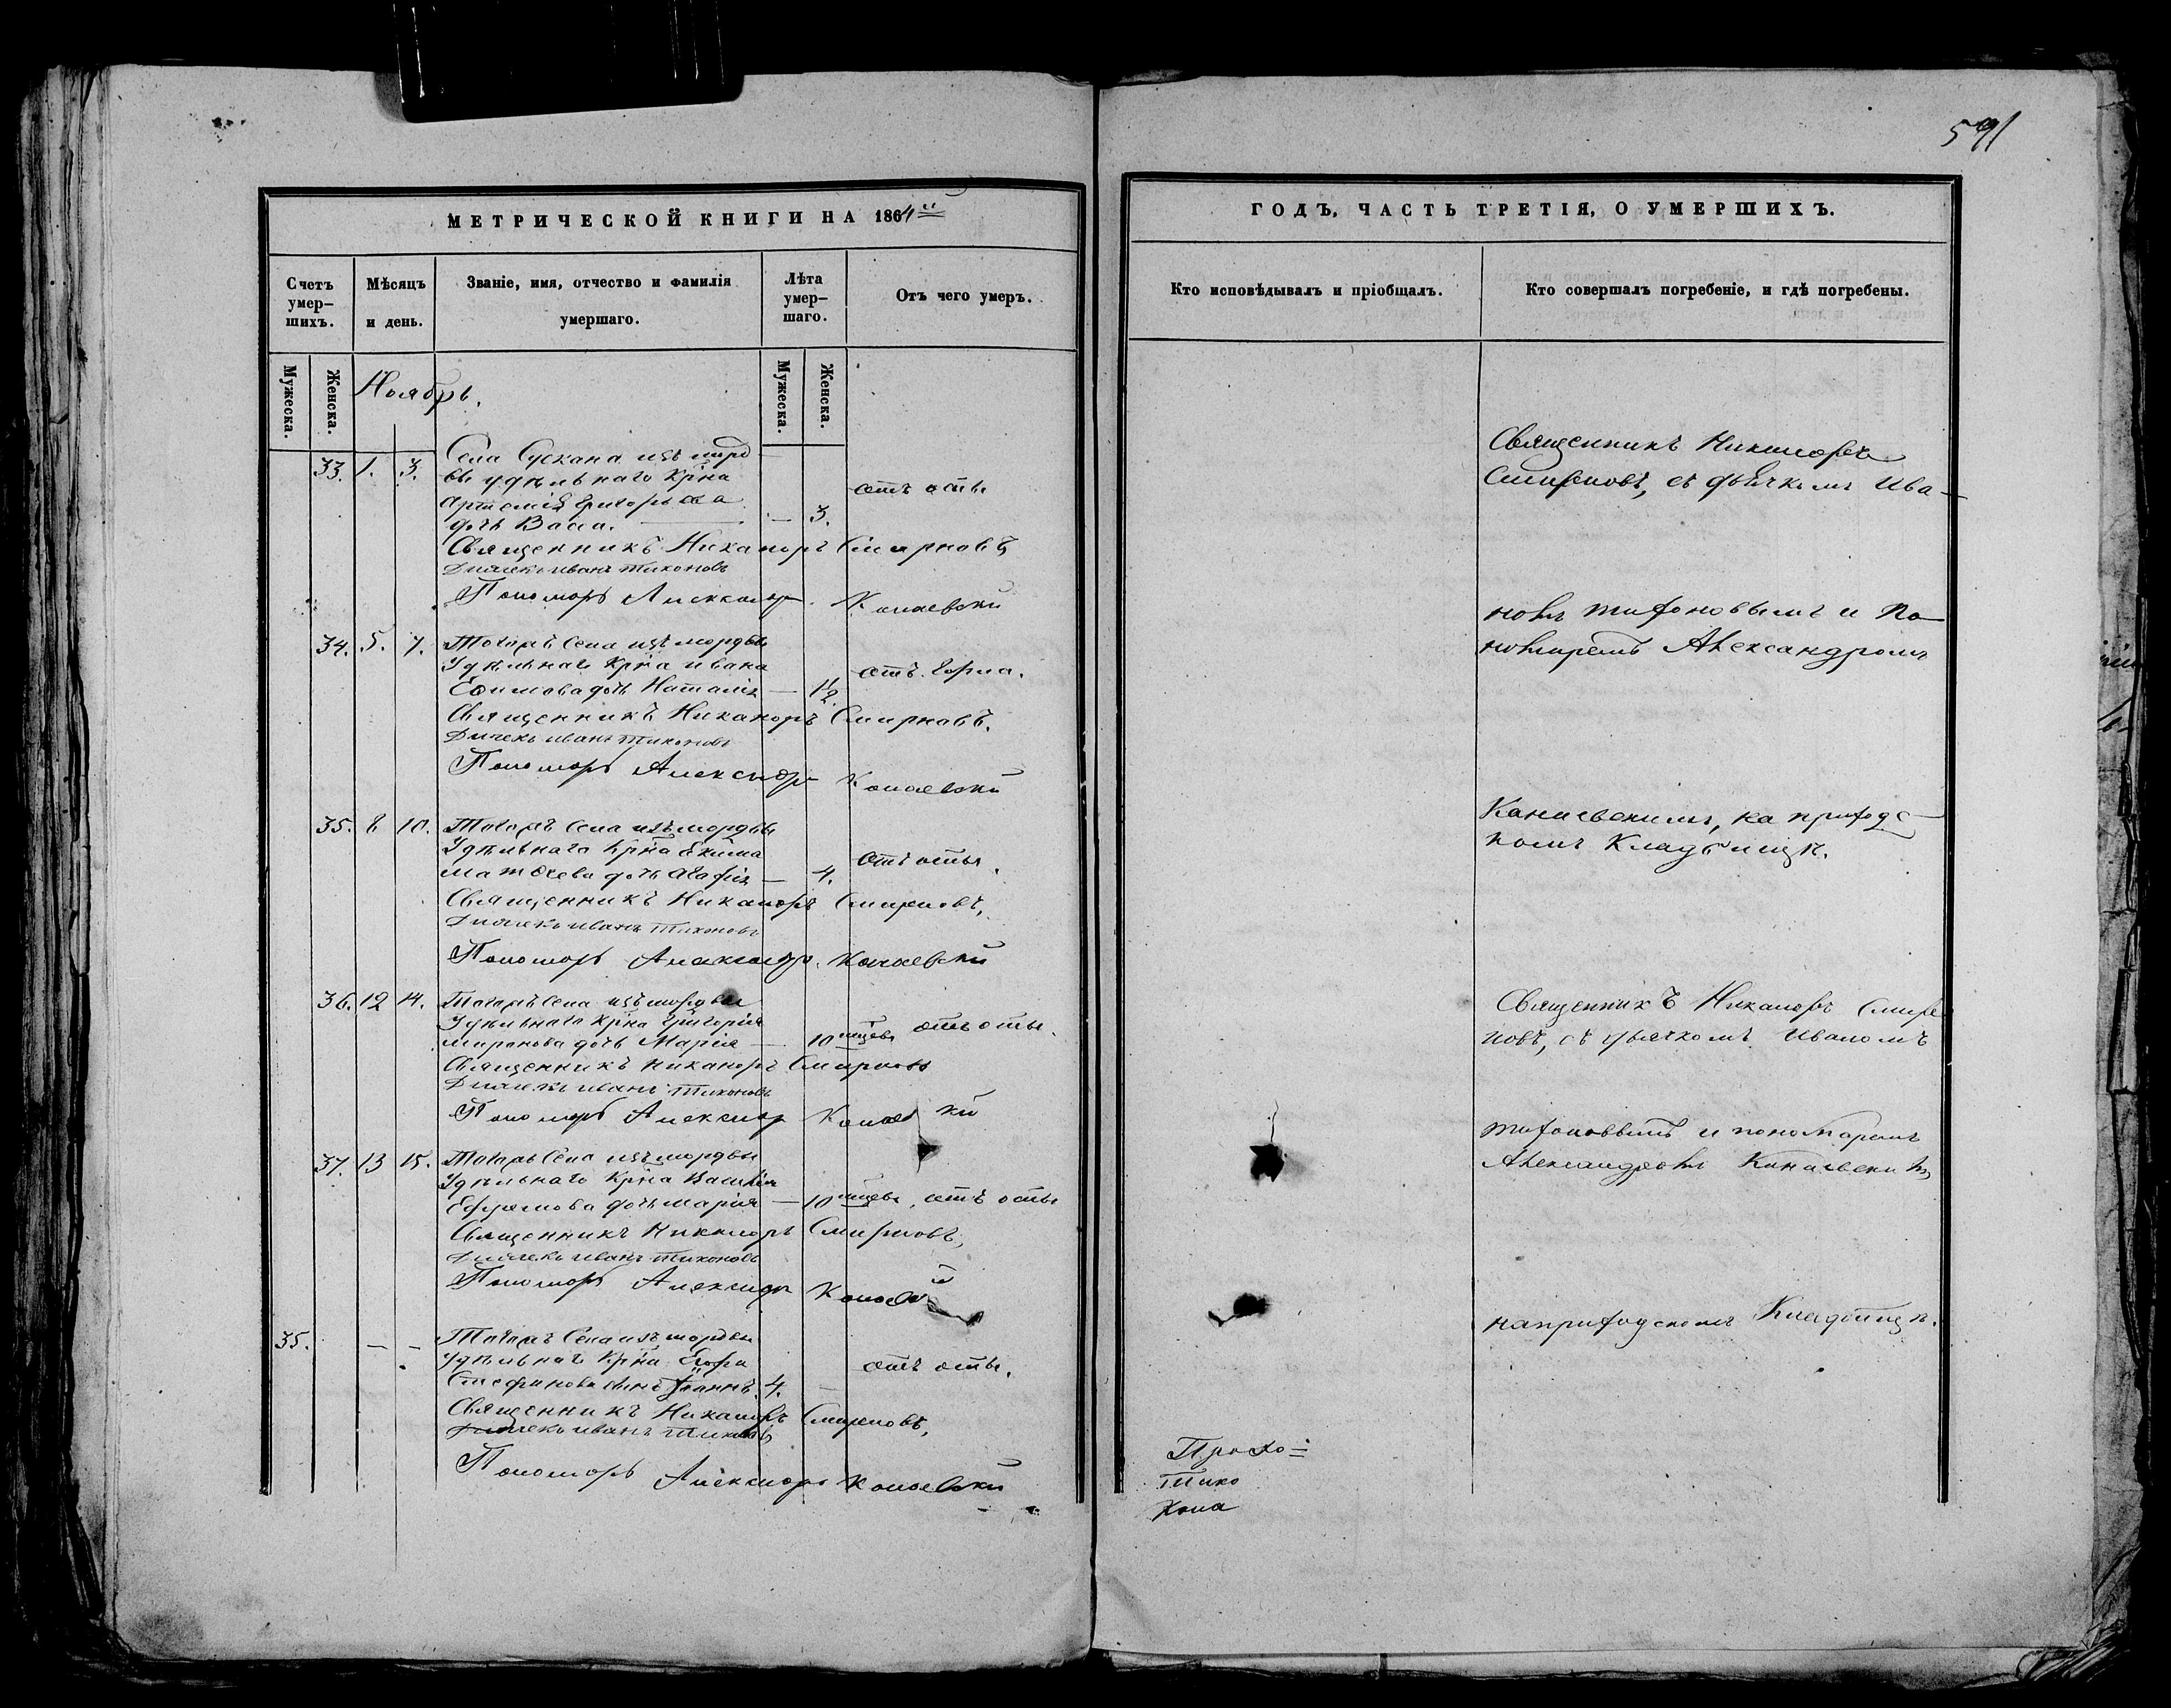 591
МЕТРИЧЕСКОЙ КНИГИ НА 1864й
Счетъ умер-шихъ.
Мѣсяцъ и день.
Званіе, имя, отчество и фамилія умершаго.
Лѣта умер-шаго.
Отъ чего умеръ.
Мужеска.
Женска.
Ноябрь.
Мужеска.
Женска.
33. 1. 3. Села Сускана изъ морд
вы удѣльнаго крⷭ҇на отъ оспы
Артемія Григорьева
дочь Васса. — — 3.
Священникъ Никаноръ Смирновъ,
Дьячекъ Иванъ Тихоновъ
Пономарь Александръ Канаевский
34. 5. 7. Тогожъ села изъ мордвы
Удѣльнаго крⷭ҇на Ивана отъ горла.
Ефимова дочь Наталія — 1½
Священникъ Никаноръ Смирновъ.
Дьячекъ Иванъ Тихоновъ
Пономарь Александръ Канаевский
35. 8. 10. Тогожъ села изъ мордвы
Удѣльнаго крⷭ҇на Екима отъ оспы.
Матвеева дочь Агафія — 4.
Священникъ Никаноръ Смирновъ,
Дьячекъ Иванъ Тихоновъ
Пономарь Александръ Канаевский
36. 12 14. Тогожъ села изъ мордвы
Удѣльнаго крⷭ҇на Григорія
Миронова дочь Марія — 10 мцевъ отъ оспы.
Священникъ Никаноръ Смирновъ
Дьячекъ Иванъ Тихоновъ
Пономарь Александръ
37. 13 15. Тогожъ села изъ мордвы
Удѣльнаго крⷭ҇на Василія
Ефремова дочь Марія — 10 мцевъ, отъ оспы
Священникъ Никаноръ Смирновъ,
Дьячекъ Иванъ Тихоновъ
Пономарь Александръ
35. — — Тогожъ села изъ мордвы
Удѣльнаг крⷭ҇на Егора отъ оспы.
Стефанова сынъ Іоаннъ. 4. —
Священникъ Никаноръ Смирновъ,
Дьячекъ Иванъ Тихоновъ
Пономарь Александръ Канаевский
ГОДЪ, ЧАСТЬ ТРЕТІЯ, О УМЕРШИХЪ.
Кто исповѣдывалъ и пріобщалъ.
Кто совершалъ погребеніе, и гдѣ погребены.
Священникъ Никаноръ
Смирновъ, съ дьячкомъ Ива-
номъ Тихоновымъ и по-
номаремъ Александромъ
Канаевскимъ, на приходс-
комъ кладбищѣ.
Священникъ Никаноръ Смир
новъ, съ дьячкомъ Иваномъ
Тихоновымъ и пономаремъ
Александромъ Канаевскимъ
на приходскомъ кладбищѣ.
Тихо
Кана